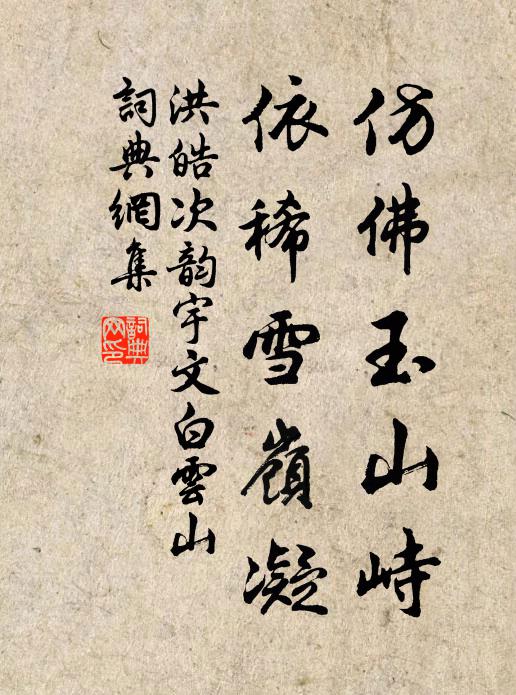 仿佛玉山峙
依稀雪嶺凝
洪皓次韵宇文白雲山
詞典網集
詞典網印